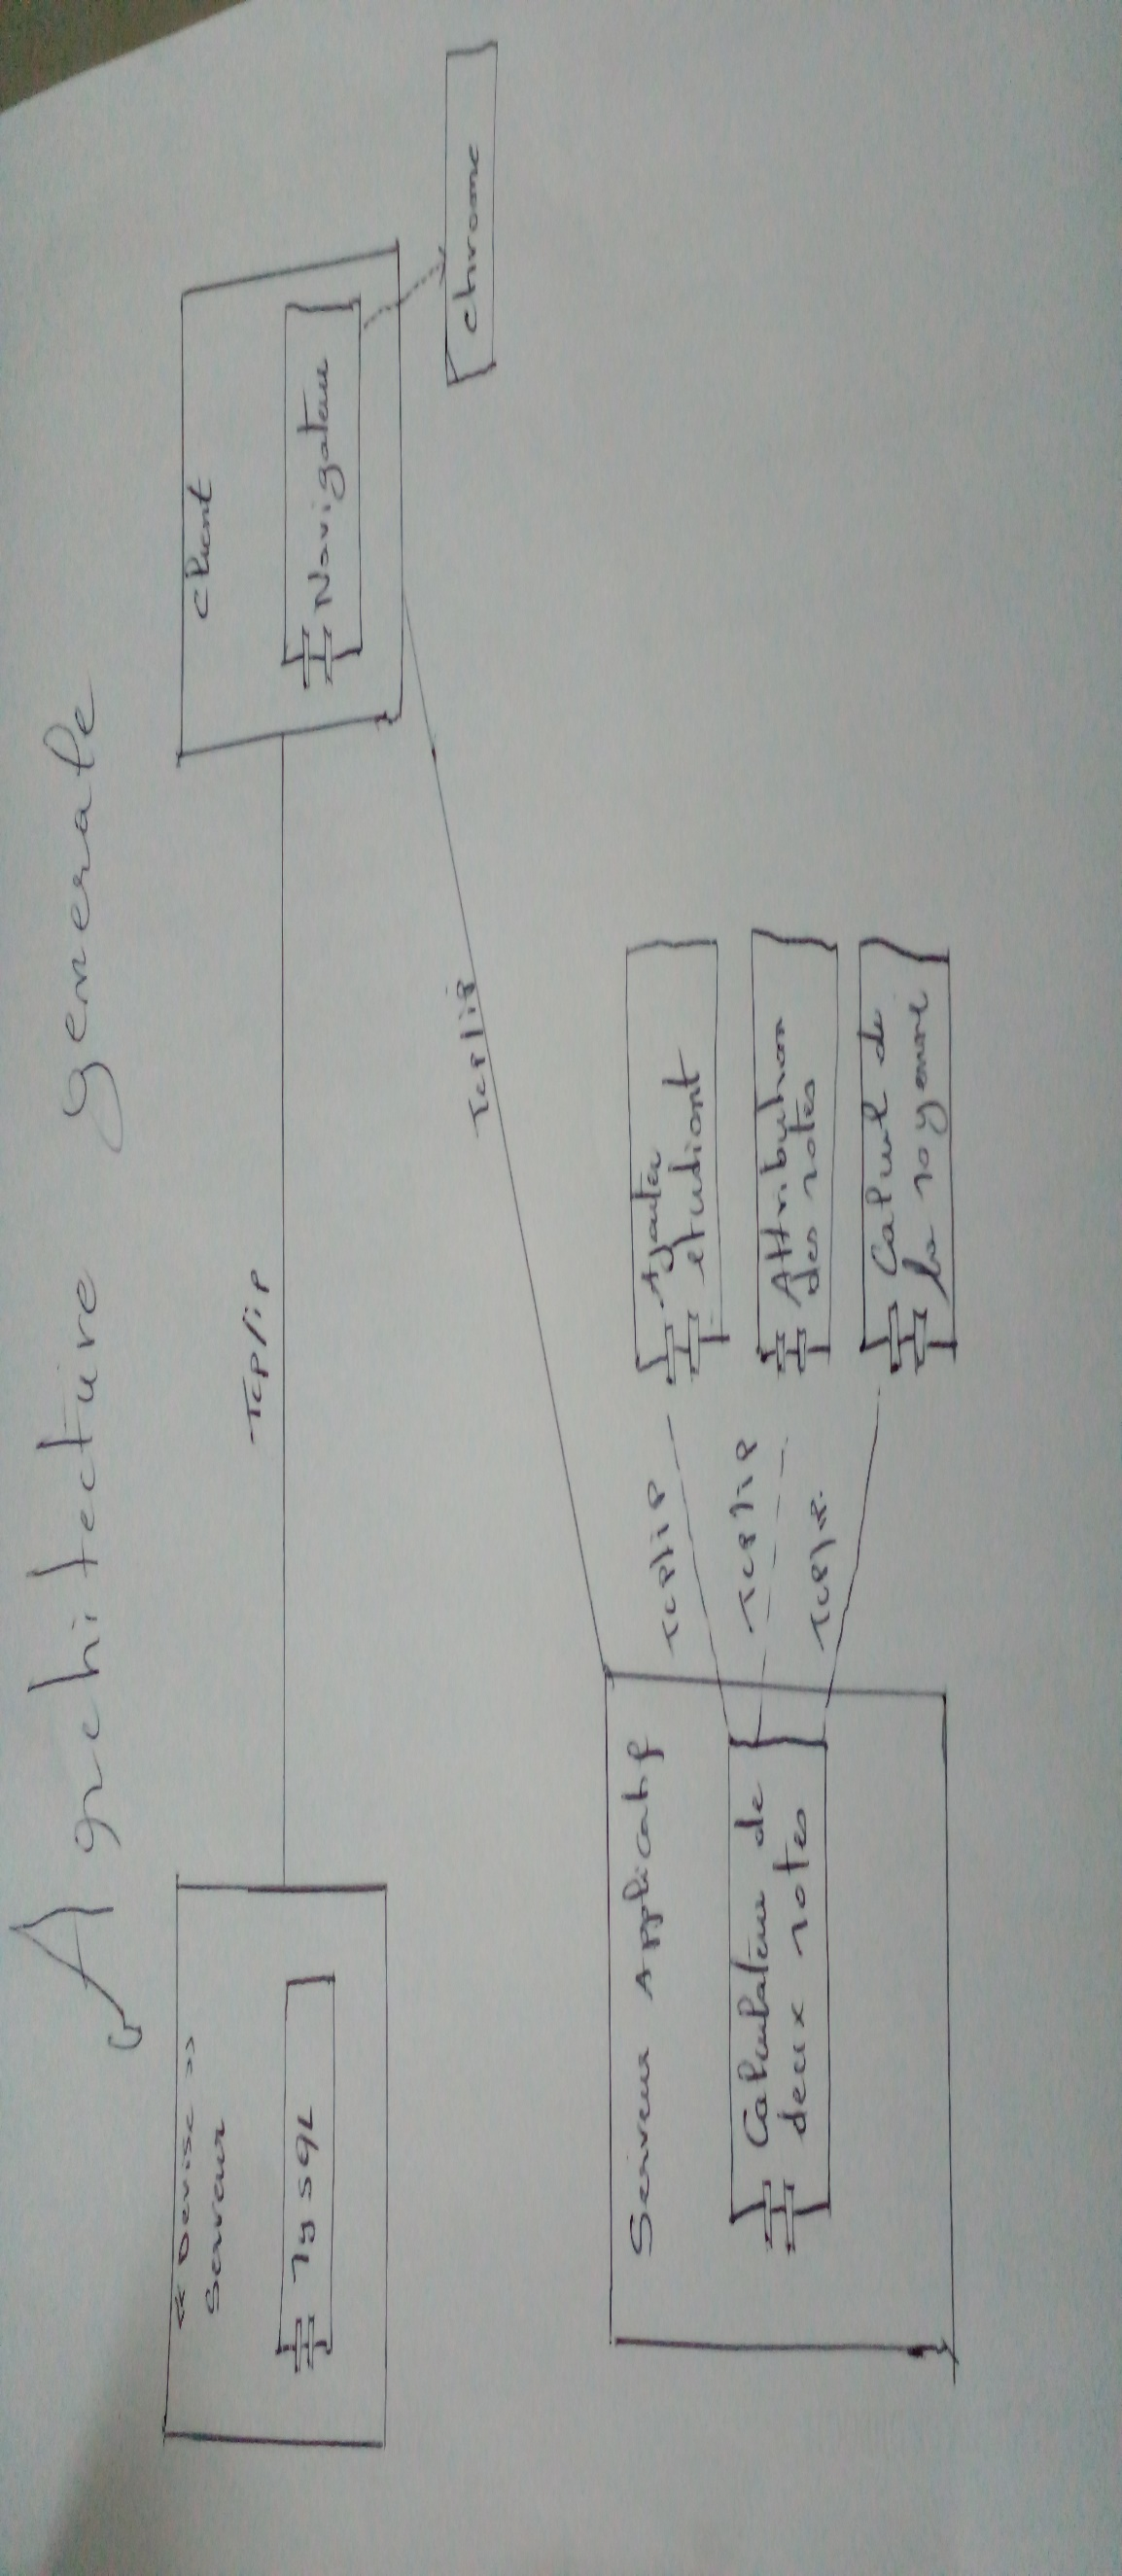 Architecture generale
« Devise »
Serveur
Mysql
Tcp/ip
client
Navigateur
chrome
Tcp/ip
Serveur Applicatif
Calculateur de
deux notes
Tcp/ip
Tcp/ip
Tcp/ip
Ajouter
etudiant
Attribution
des notes
Calcul de
la moyenne